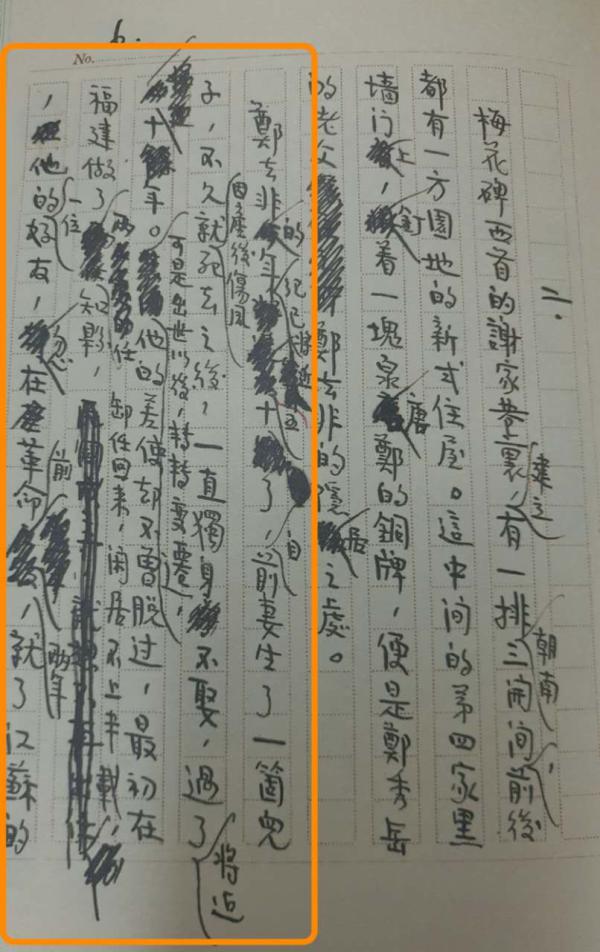 No.
二.
梅花碑西首的謝家巷裏,建立有一排三開間朝南前後
都有一方園地的新式住屋。這中间的第四家黑
墻门上,釘着一塊泉唐鄭的銅牌,便是鄭秀岳
的老父鄭去非的隱居之處。
鄭去非的年纪已將近五十了,自前妻生了一箇兒
子,不久就因產後傷風死去之後,一直獨身不娶,過了將近
十年。可是出世以後,轉轉變遷,他的差使却不曾脱过,最初在
福建做了兩任知縣,卸任回来,闲居不上半載,
,他的一位好友,忽在革命前兩年,就了江蘇的